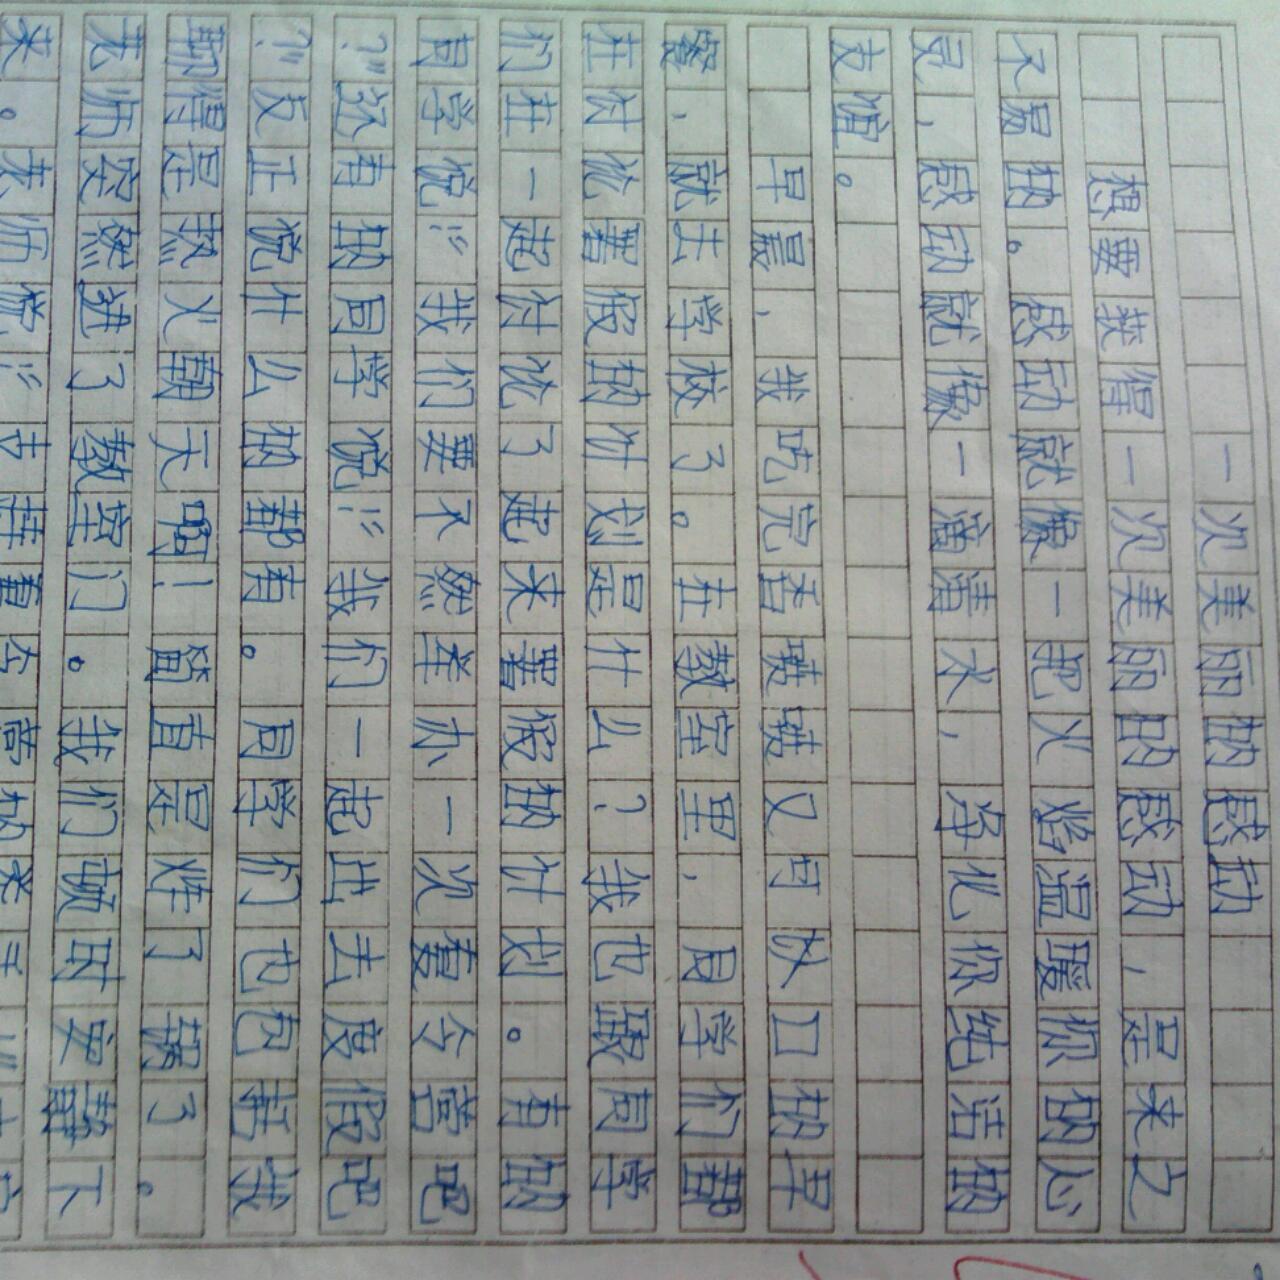 一次美丽的感动
想要获得一次美丽的感动，是来之
不易的。感动就像一把火焰温暖你的心
灵，感动就像一滴清水，净化你纯洁的
友谊。
早晨，我吃完香喷喷又可口的早
餐，就去学校了。在教室里，同学们都
在讨论暑假的计划是什么？我也跟同学
们在一起讨论了起来暑假的计划。有的
同学说：“我们要不然举办一次夏令营吧
？”还有的同学说：“我们一起出去度假吧
？”反正说什么的都有。同学们也包括我
聊得是热火朝天啊！简直是炸了锅了。
老师突然进了教室门。我们顿时安静下
来。老师说：“